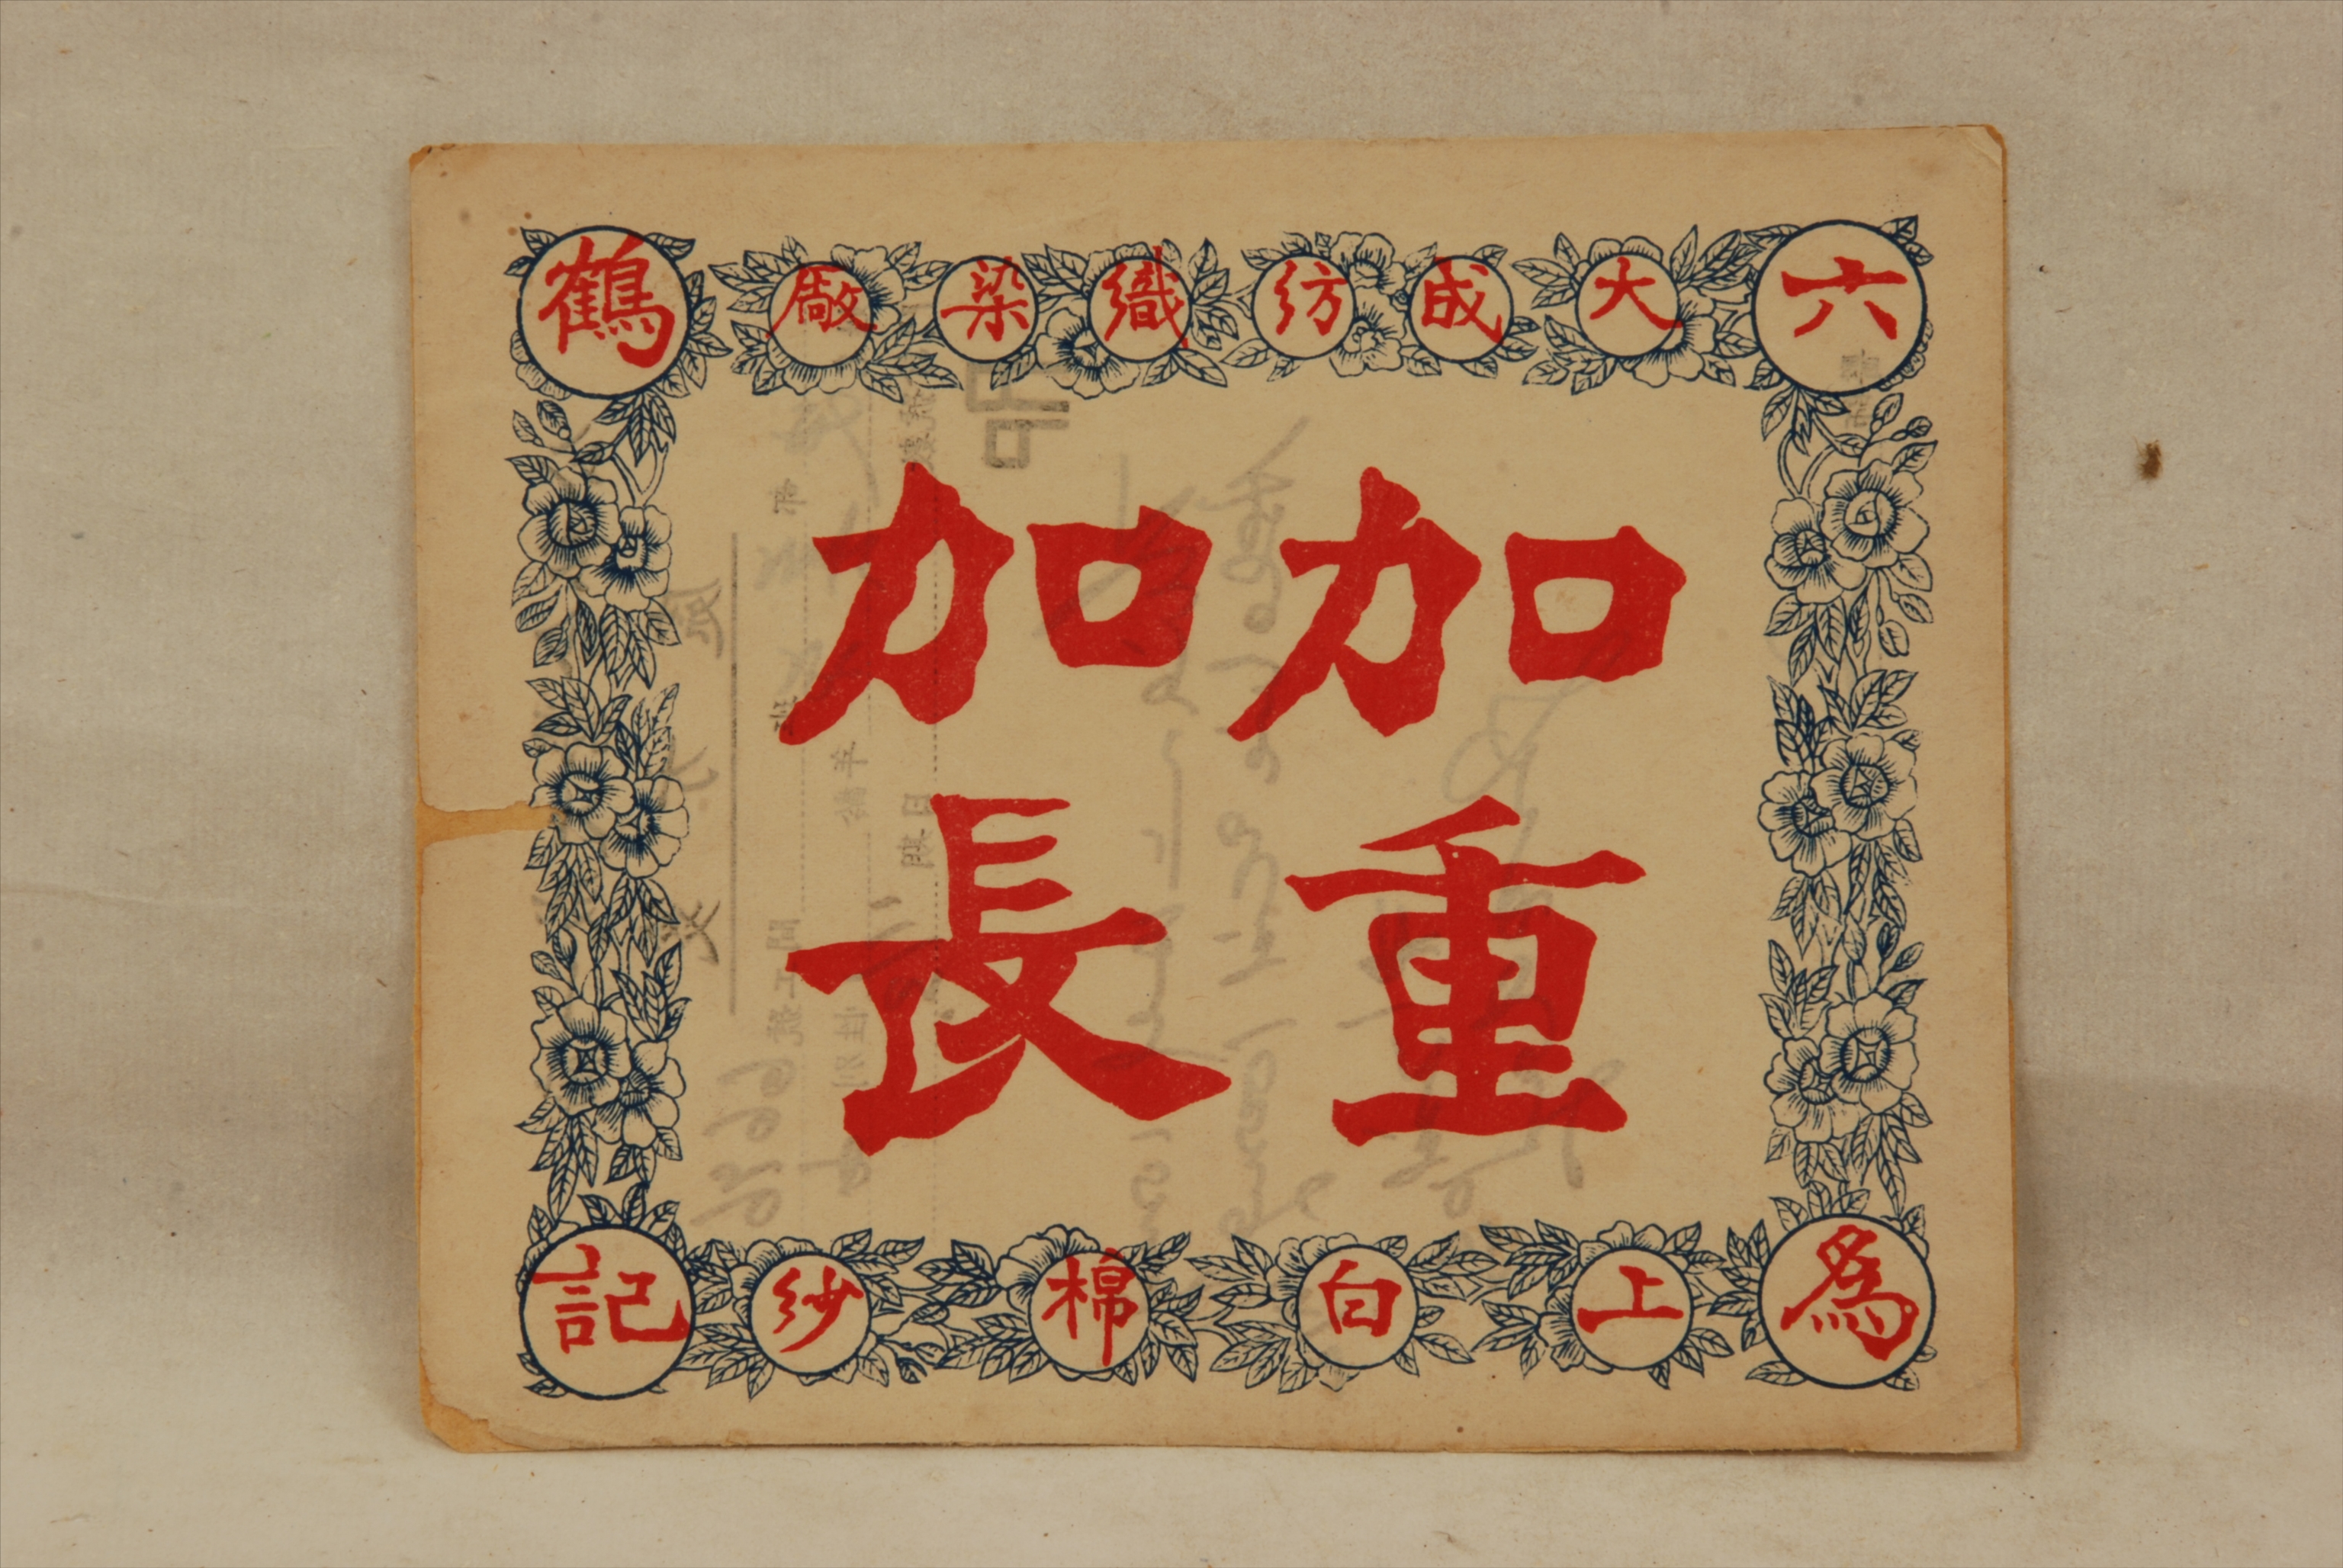 六大成紡織染廠鶴
加重
加長
爲上白棉紗記